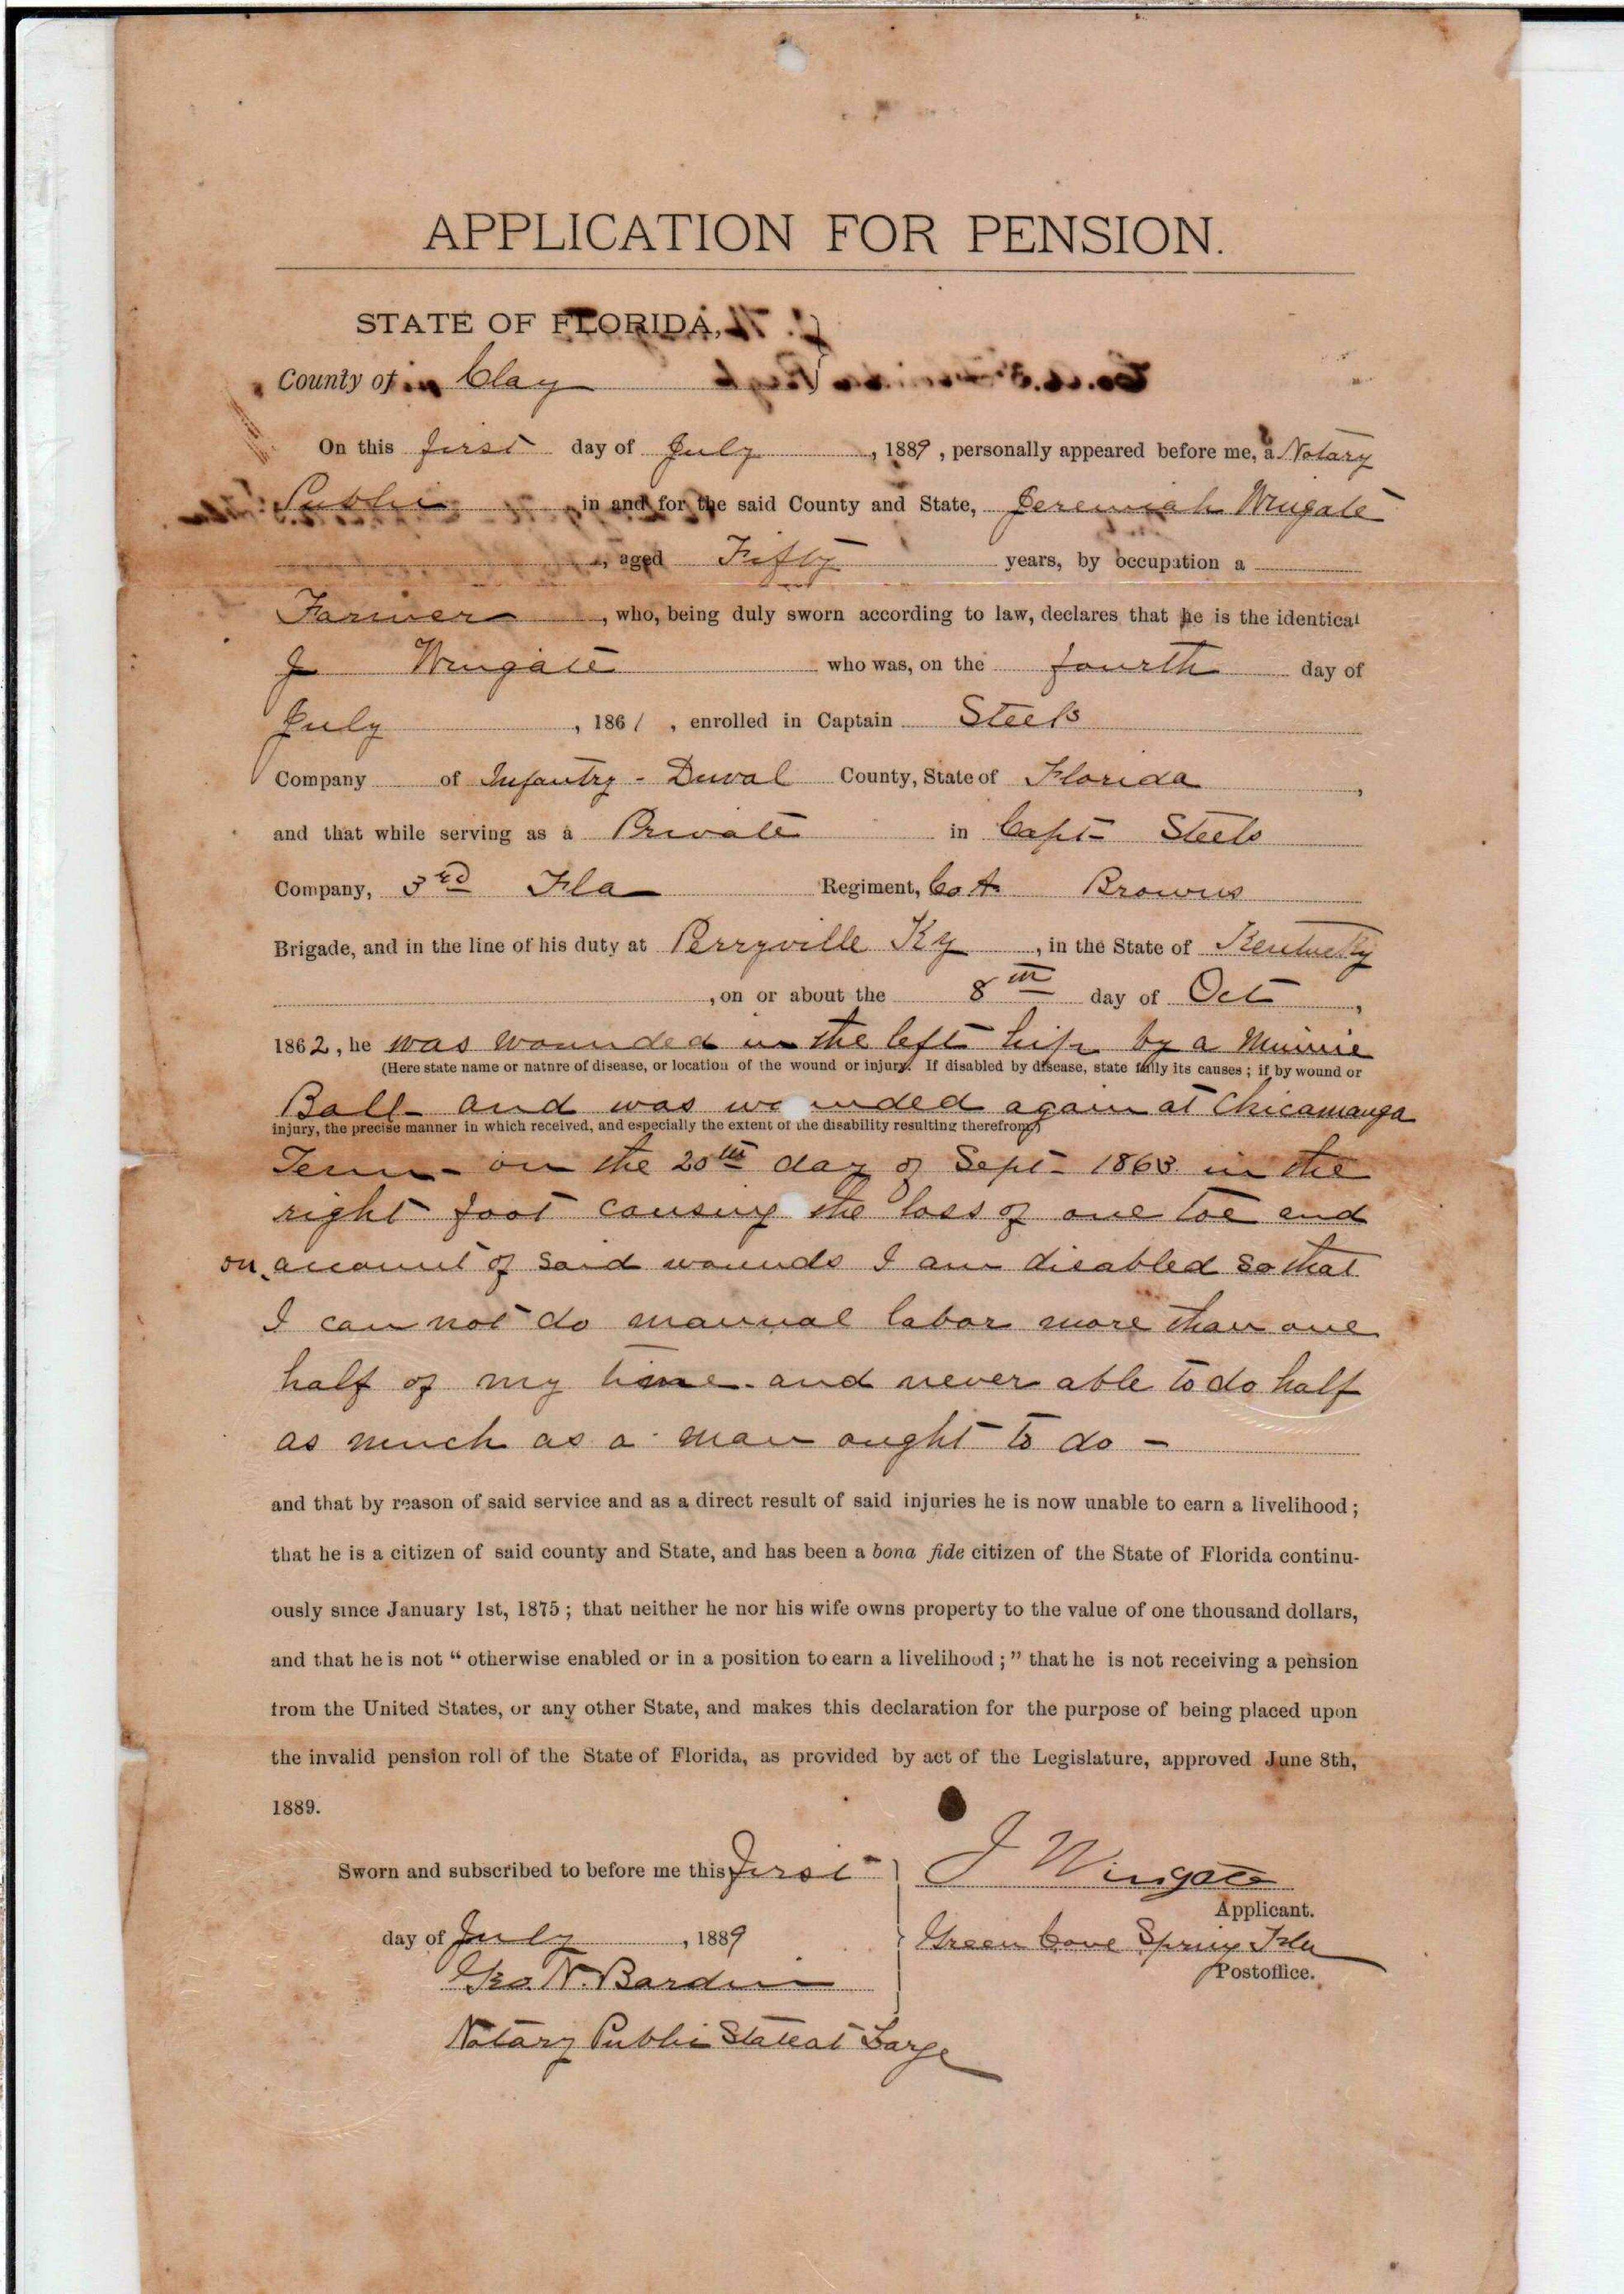 APPLICATION FOR PENSION.
STATE OF FLORIDA,
County of Clay
On this first day of July, 1889, personally appeared before me, a Notary
Public in and for the said County and State, Jeremiah Wingate
, aged Fifty years, by occupation a
Farmer, who, being duly sworn according to law, declares that he is the identical
J Wingate who was, on the fourth day of
July, 1861, enrolled in Captain Steels
Company of Infantry - Duval County, State of Florida,
and that while serving as a Private in Capt Steels
Company, 3rd Fla Regiment, Co A. Browns
Brigade, and in the line of his duty at Perryville Ky, in the State of Kentucky
, on or about the 8th day of Oct,
1862, he was wounded in the left hip by a Minnie
(Here state name or nature of disease, or location of the wound or injury. If disabled by disease, state fully its causes; if by wound or
Ball - and was wounded again at Chicamauga
injury, the precise manner in which received, and especially the extent of the disability resulting therefrom)
Tenn - on the 20th day of Sept - 1863 in the
right foot causing the loss of one toe and
on account of said wounds I am disabled so that
I can not do manual labor more than one
half of my time. and never able to do half
as much as a man ought to do -
and that by reason of said service and as a direct result of said injuries he is now unable to earn a livelihood;
that he is a citizen of said county and State, and has been a bona fide citizen of the State of Florida continu-
ously since January 1st, 1875; that neither he nor his wife owns property to the value of one thousand dollars,
and that he is not "otherwise enabled or in a position to earn a livelihood;" that he is not receiving a pension
from the United States, or any other State, and makes this declaration for the purpose of being placed upon
the invalid pension roll of the State of Florida, as provided by act of the Legislature, approved June 8th,
1889.
Sworn and subscribed to before me this first
day of July, 1889
Geo. N. Bardin
Notary Public State at Large
J Wingate
Applicant.
Green Cove Spring Fla
Postoffice.